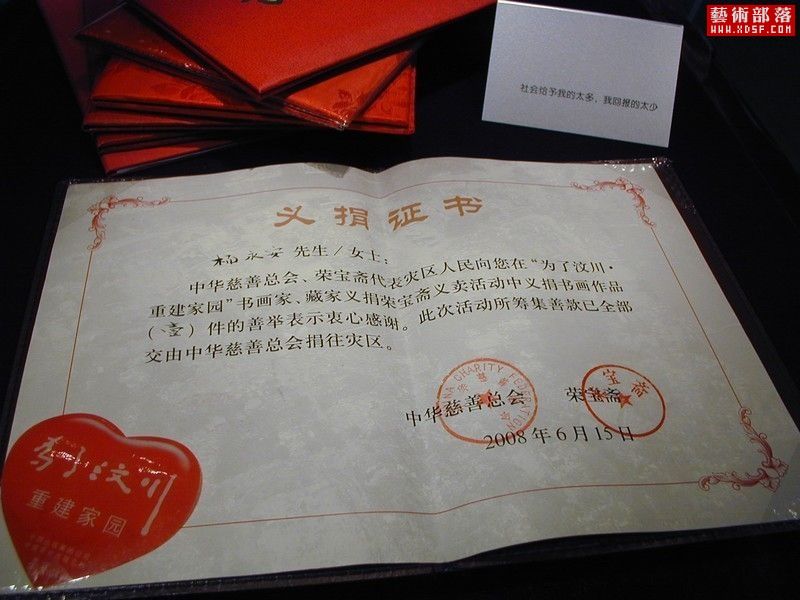 藝術部落
WWW.XDSF.COM
社会给予我的太多，我回报的太少
义捐证书
杨永安 先生/女士：
中华慈善总会、荣宝斋代表灾区人民向您在“为了汶川·
重建家园”书画家、藏家义捐荣宝斋义卖活动中义捐书画作品
（壹）件的善举表示衷心感谢。此次活动所筹集善款已全部
交由中华慈善总会捐往灾区。
中华慈善总会 荣宝斋
CHINA CHARITY FEDERATION
2008年6月15日
为了汶川
重建家园